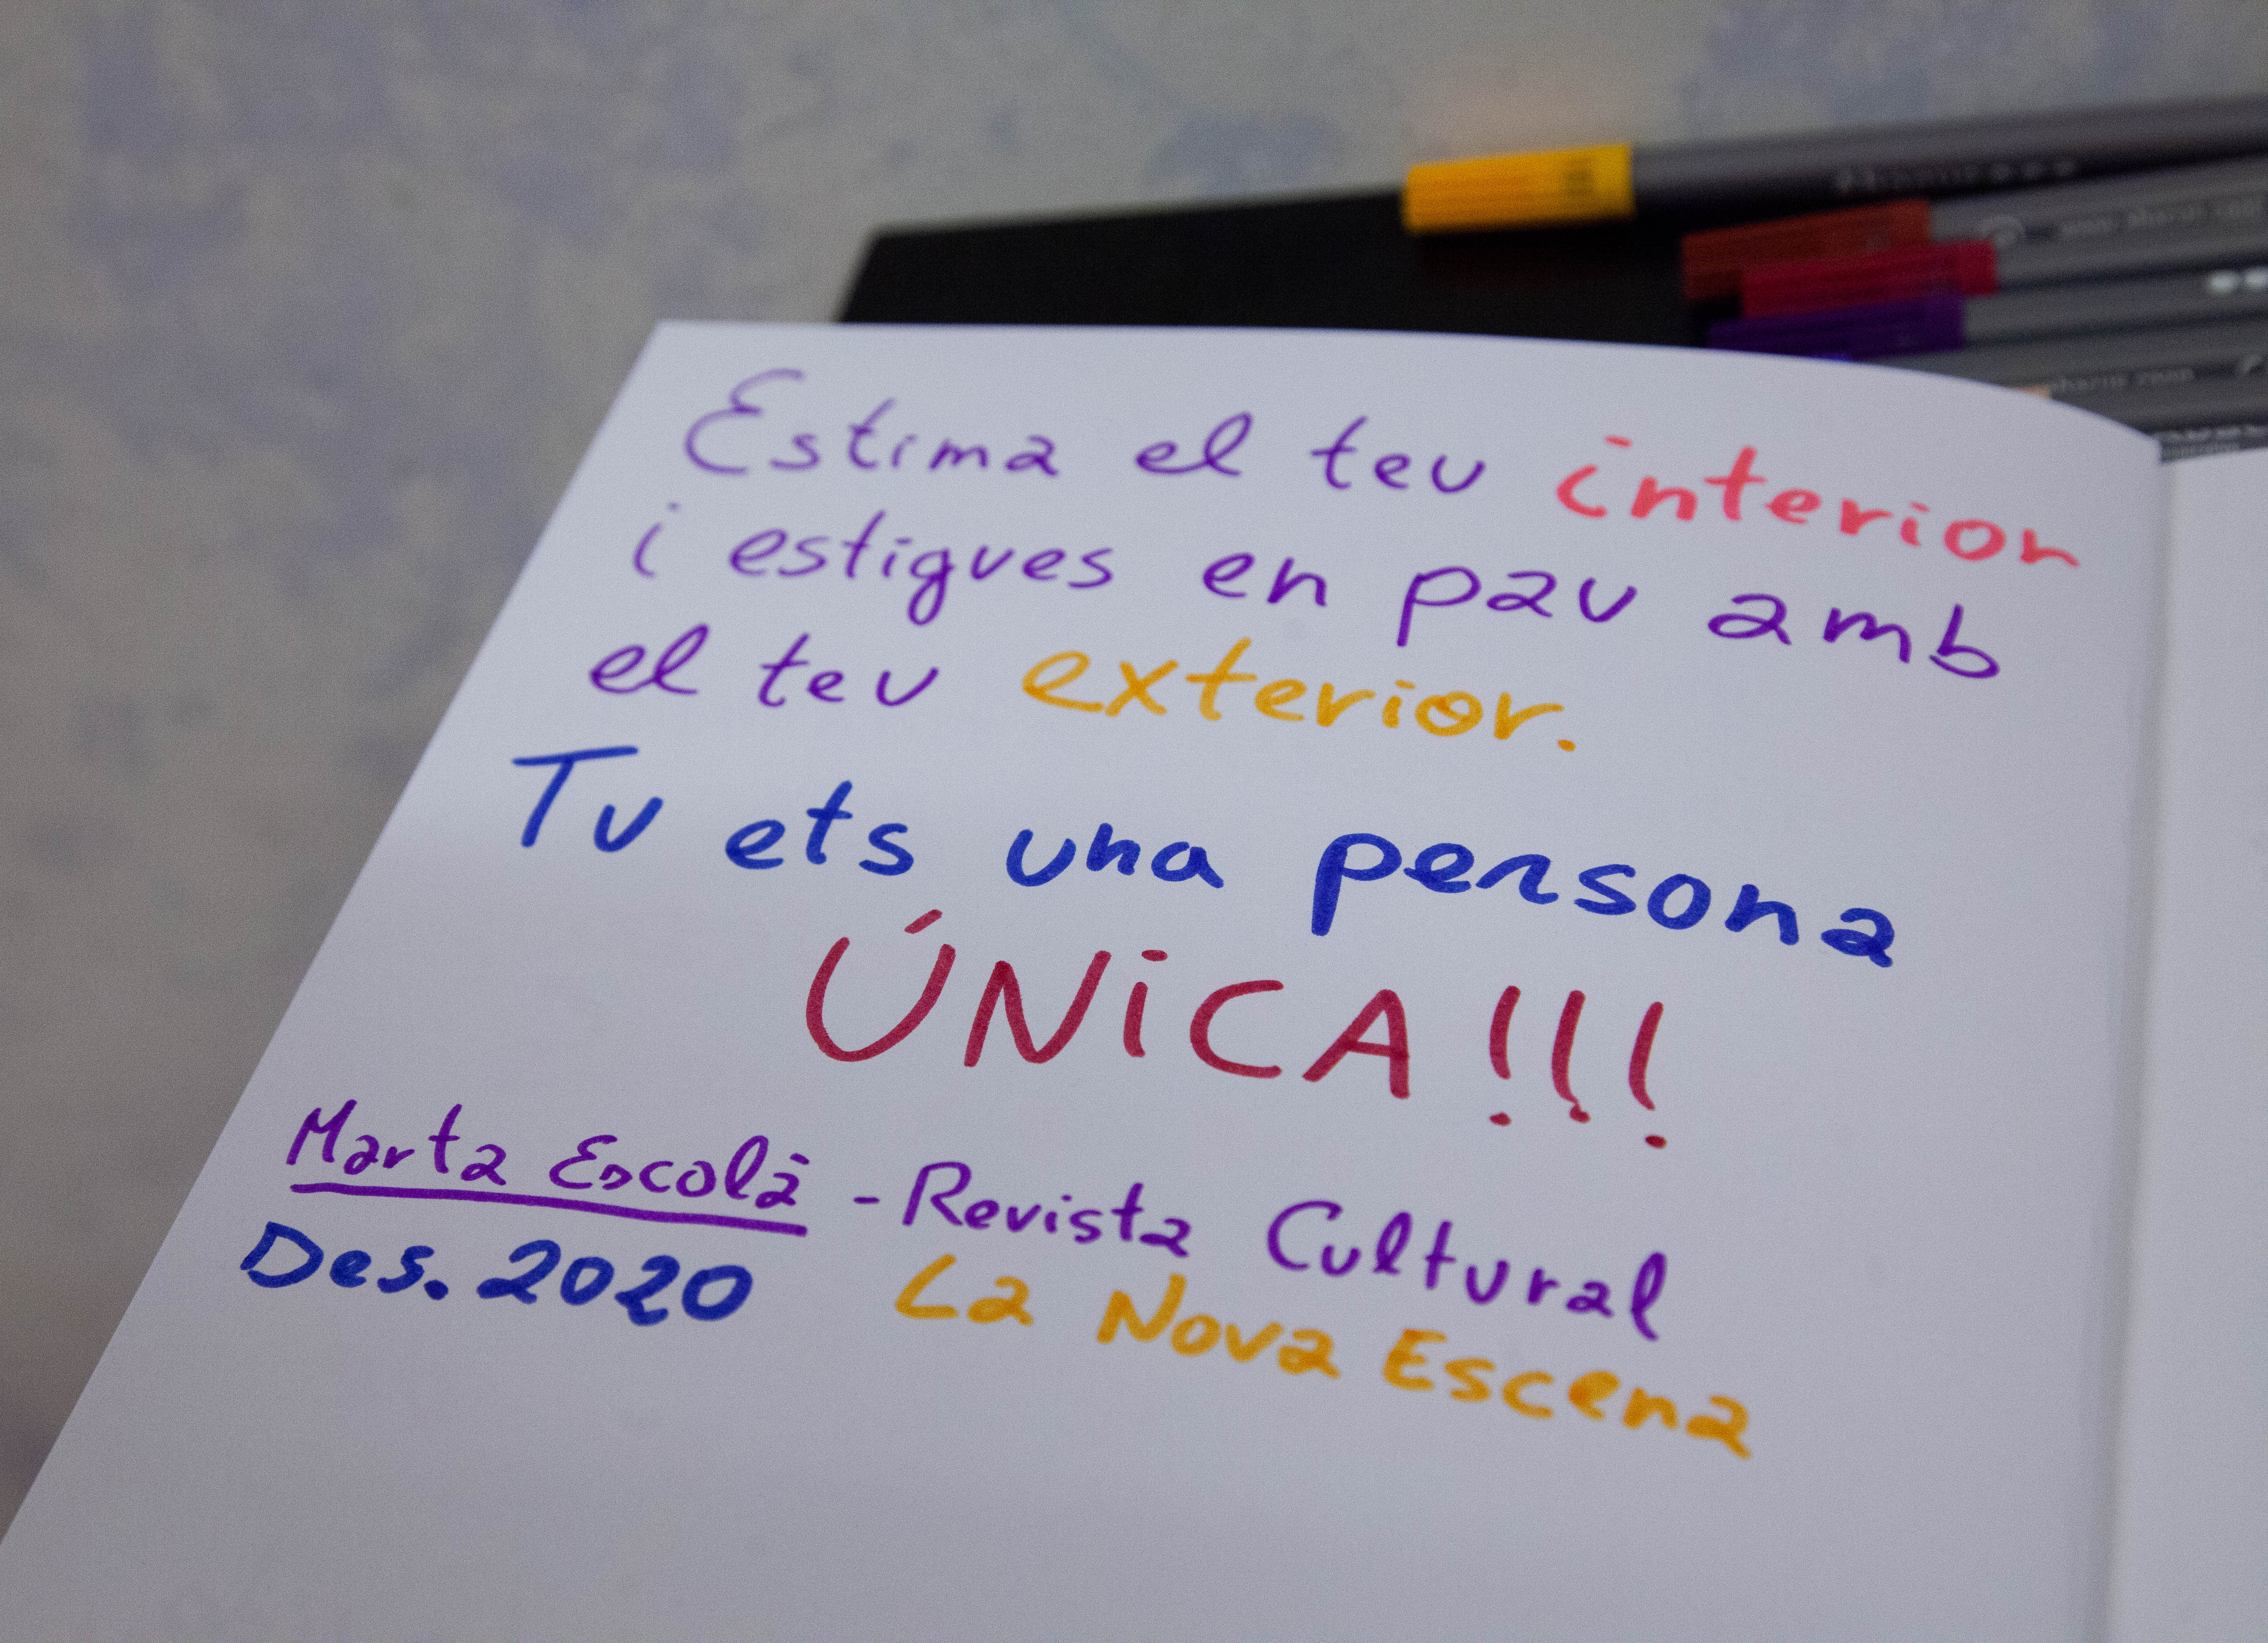 Estima el teu interior
i estigues en pau amb
el teu exterior.
Tu ets una persona
ÚNiCA!!!
Marta Escolà - Revista Cultural
Des. 2020 La Nova Escena